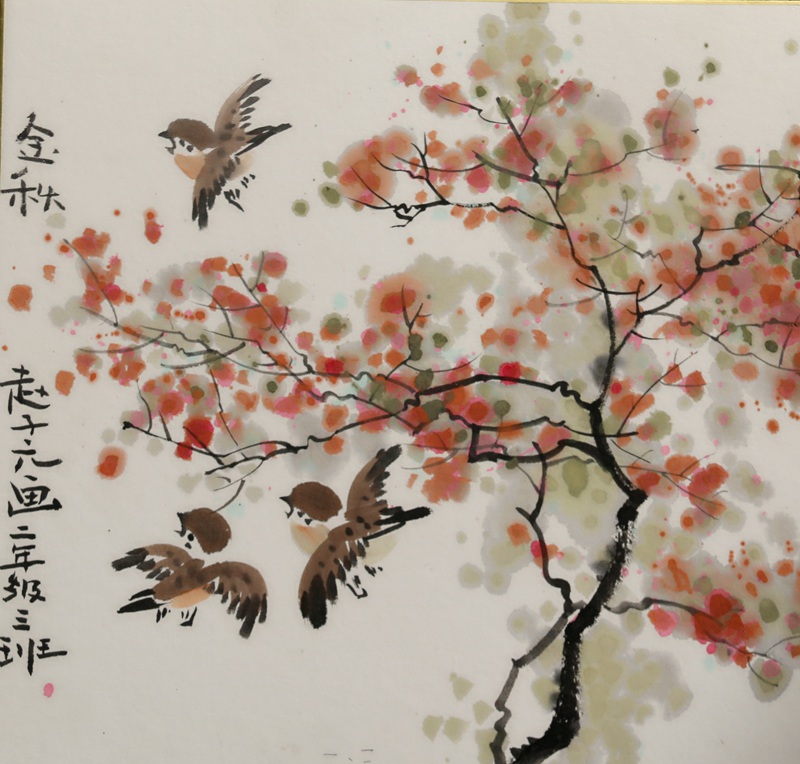 金秋
赵子元画二年级三班